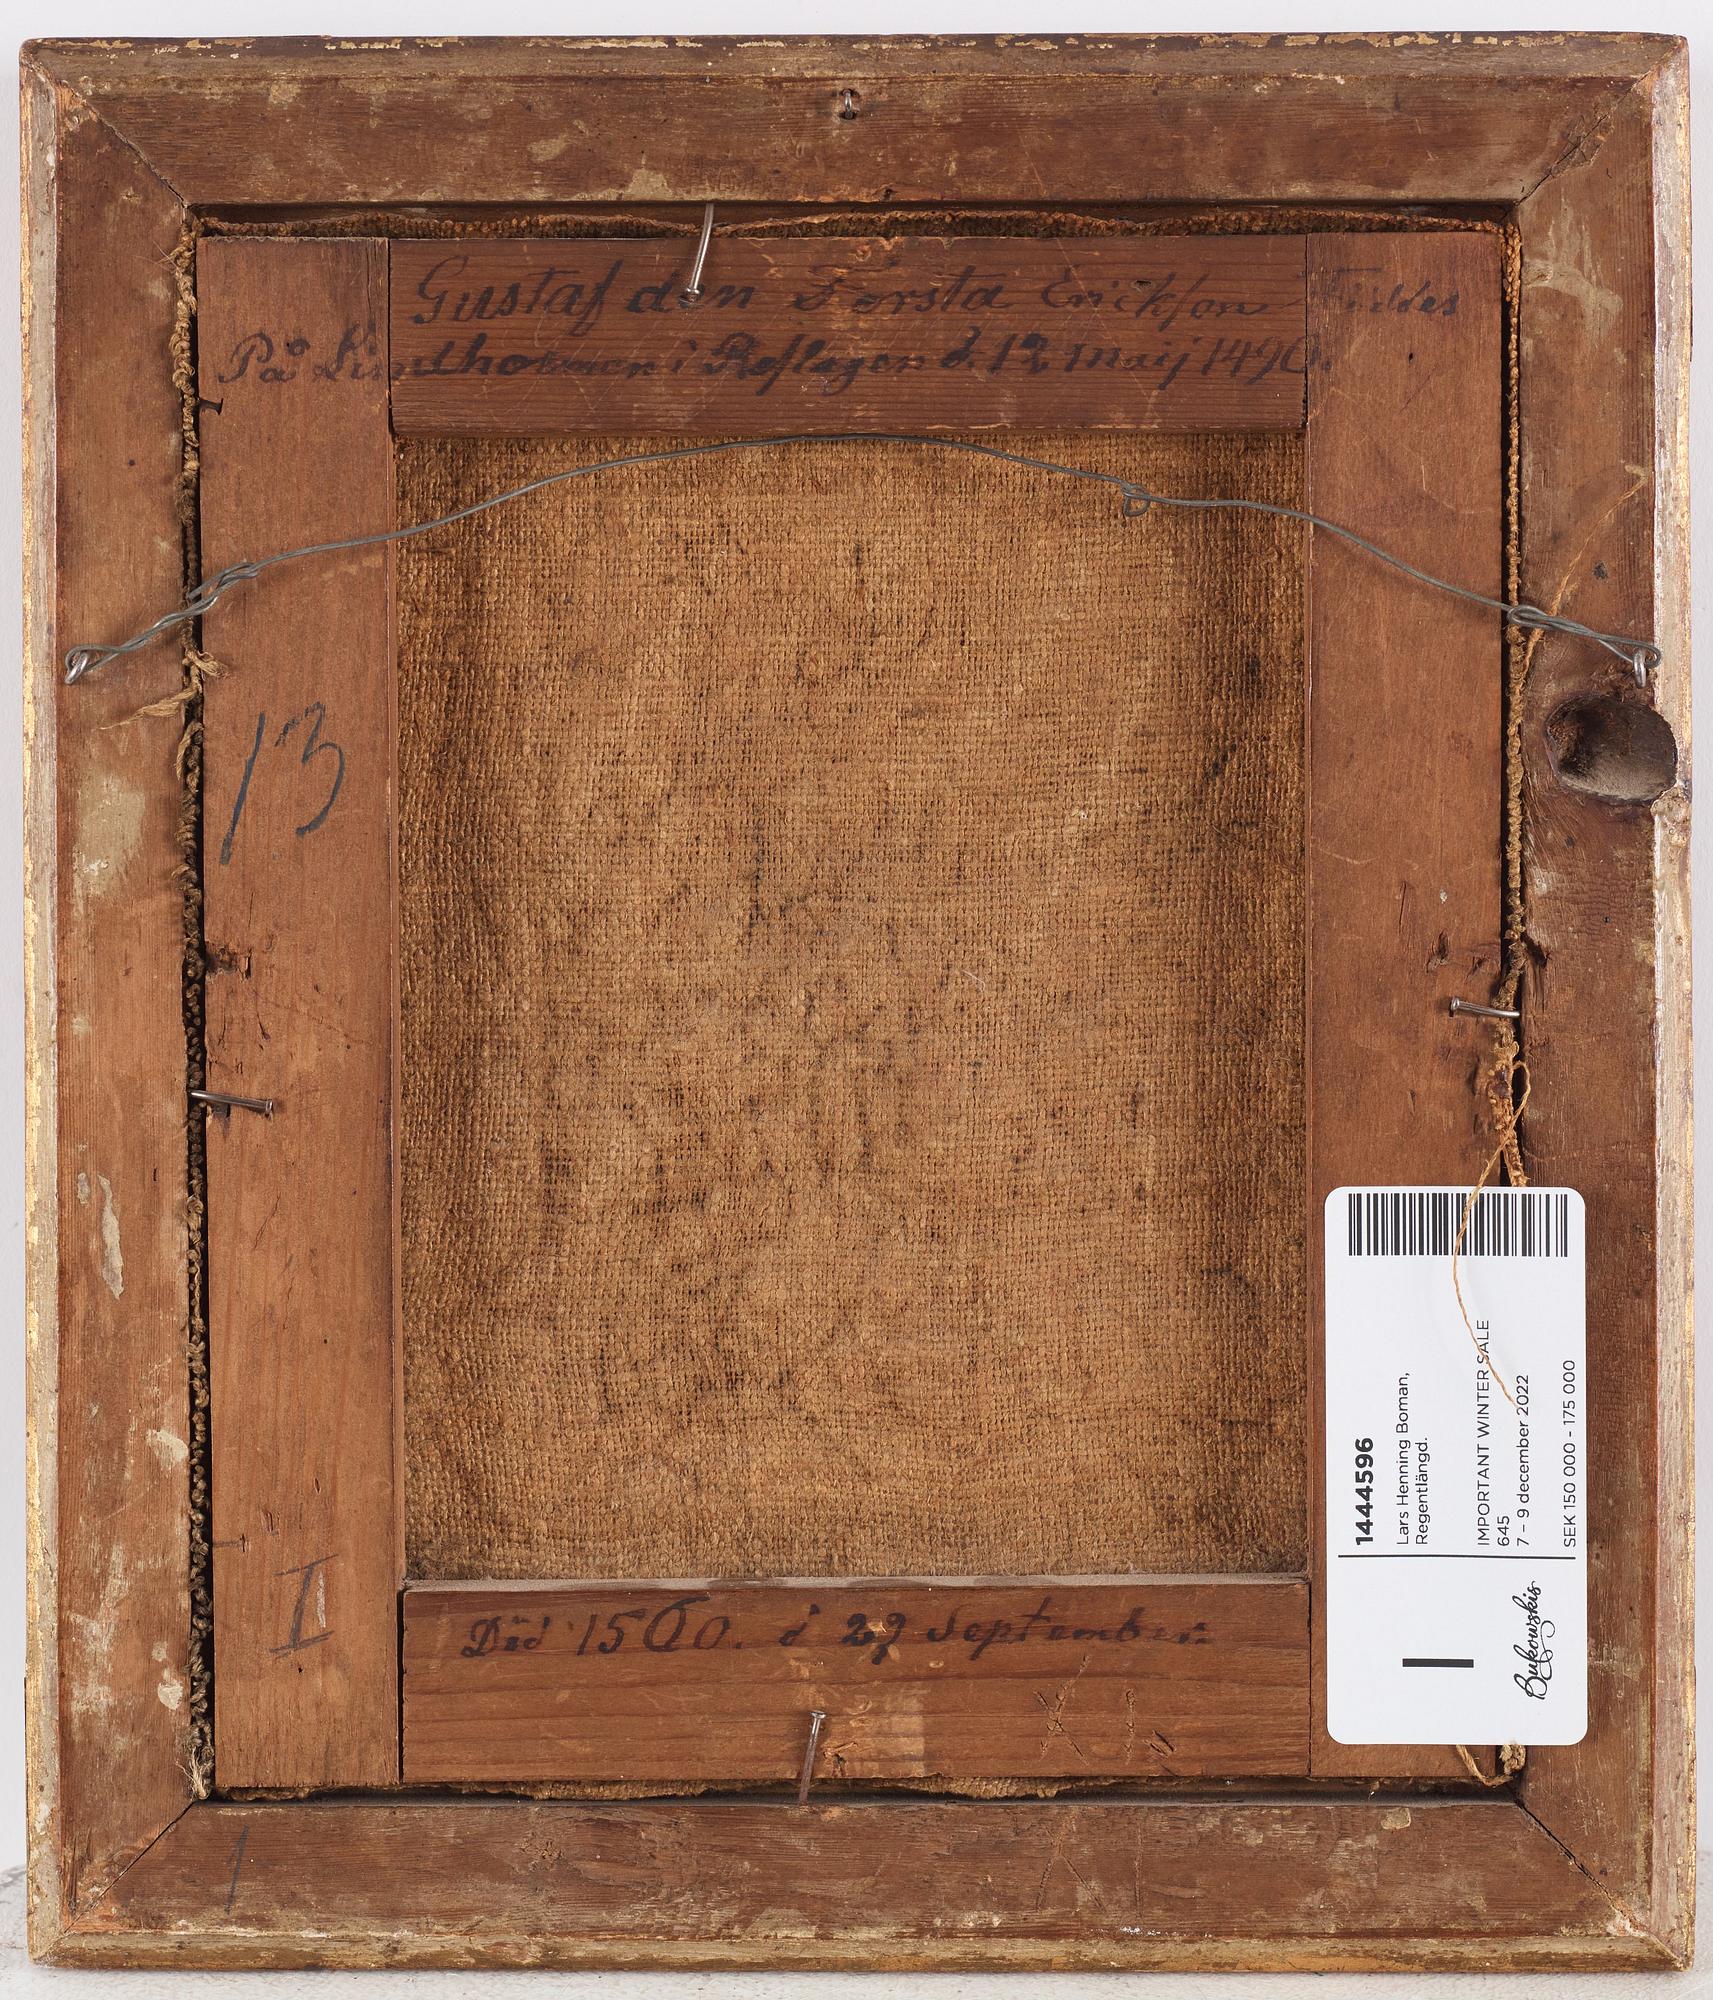 Gustaf den Första Erickson Föddes
På Lindholmen i Roslagen d. 12 Maij 1490.
13
I
Död 1560. d 29 September.
1
1444596
Lars Henning Boman,
Regentlängd.
IMPORTANT WINTER SALE
645
7 – 9 december 2022
SEK 150 000 - 175 000
Bukowskis